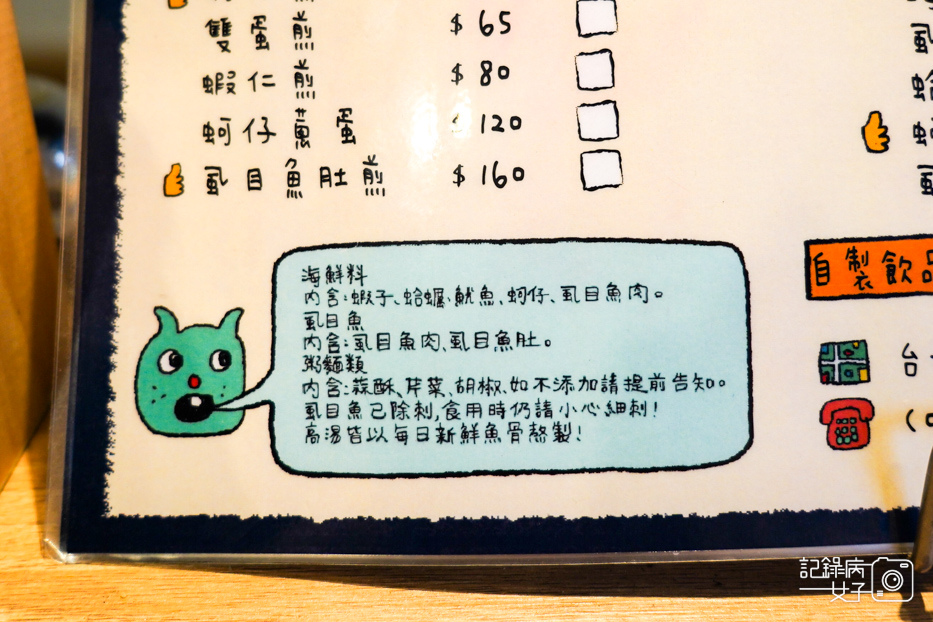 雙蛋煎 $65
蝦仁煎 $80
蚵仔蔥蛋 $120
虱目魚肚煎 $160
海鮮料
內含:蝦子、蛤蠣、魷魚、蚵仔、虱目魚肉。
虱目魚
內含:虱目魚肉、虱目魚肚。
粥麵類
內含:蒜酥、芹菜、胡椒、如不添加請提前告知。
虱目魚已除刺,食用時仍請小心細刺!
高湯皆以每日新鮮魚骨熬製!
自製飲品
台
記錄病
女子